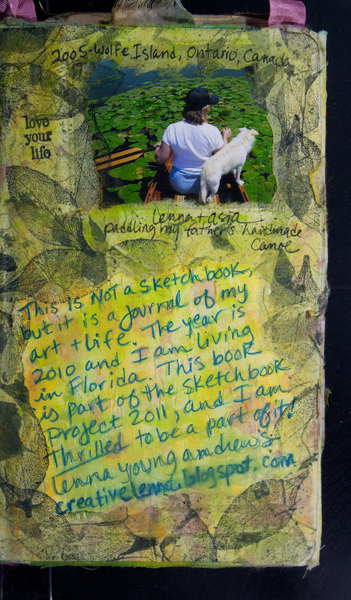 2005-Wolfe Island, Ontario, Canada
love
your
life
lenna + asia
paddling my father's handmade
Canoe
This is NOT a sketchbook,
but it is a journal of my
art + life. The year is
2010 and I am living
in Florida. This book
is part of the Sketchbook
Project 2011, and I am
Thrilled to be a part of it!
lenna young andrews
creativelenna.blogspot.com